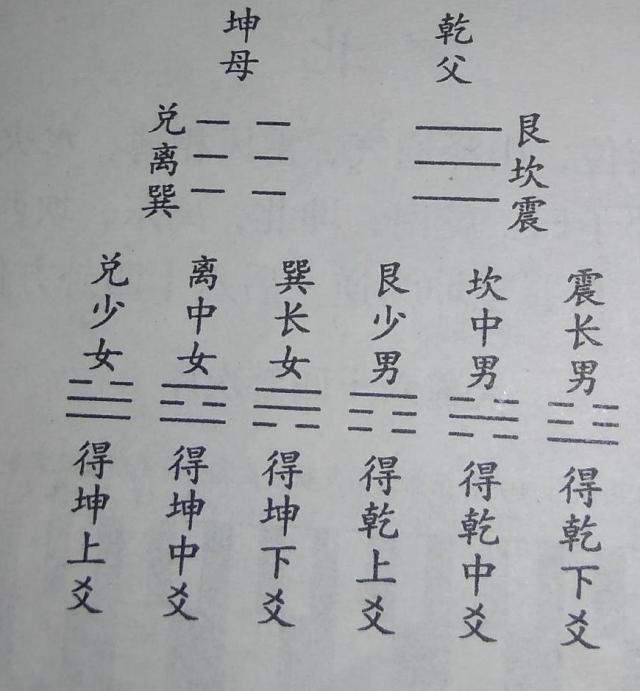 乾父
坤母
艮
坎
震
兑
离
巽
震长男
坎中男
艮少男
巽长女
离中女
兑少女
得乾下爻
得乾中爻
得乾上爻
得坤下爻
得坤中爻
得坤上爻